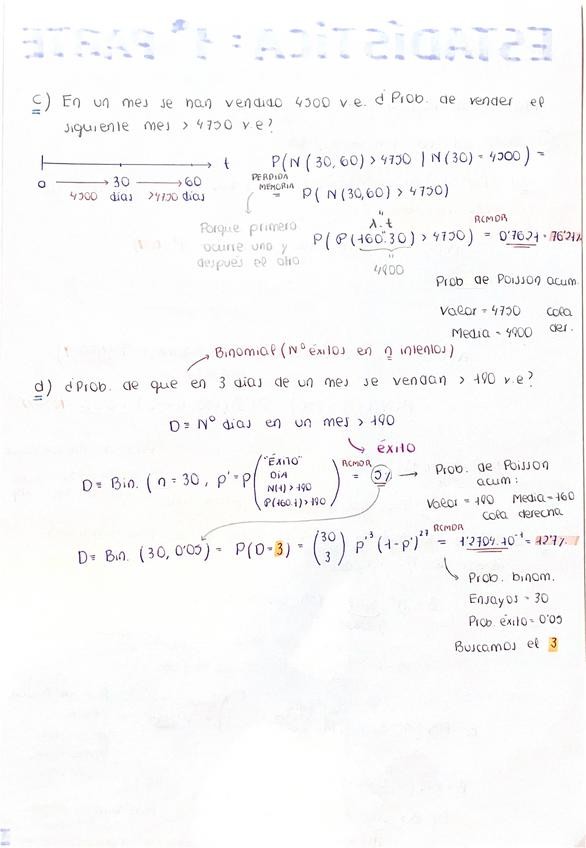 ESTADÍSTICA: 1ª PARTE
c) En un mes se han vendido 4500 v.e. ¿Prob. de vender el
siguiente mes > 4750 v.e?
0 30 60 t
4500 días >4750 días
P(N(30,60) > 4750 | N(30) = 4500) =
PERDIDA MEMORIA
= P(N(30,60) > 4750)
Porque primero
ocurre uno y
después el otro
λ·t
P(P(160·30) > 4750) = 0'7621 = 76'21%
RCMDR
4800
Prob de Poisson acum.
Valor = 4750 cola
Media = 4800 der.
Binomial (Nº éxitos en n intentos)
d) ¿Prob. de que en 3 días de un mes se vendan > 180 v.e?
D = Nº días en un mes > 180
éxito
D = Bin. (n = 30, p' = P("ÉXITO" DIA N(1) > 180 P(160·1) > 180) = 5%
RCMDR
Prob. de Poisson
acum:
Valor = 180 Media = 160
Cola derecha
D = Bin. (30, 0'05) = P(D=3) = (30 3) p'³ (1-p')²⁷ = 1'2704·10⁻¹ = 12'7%
RCMDR
Prob. binom.
Ensayos = 30
Prob. éxito = 0'05
Buscamos el 3